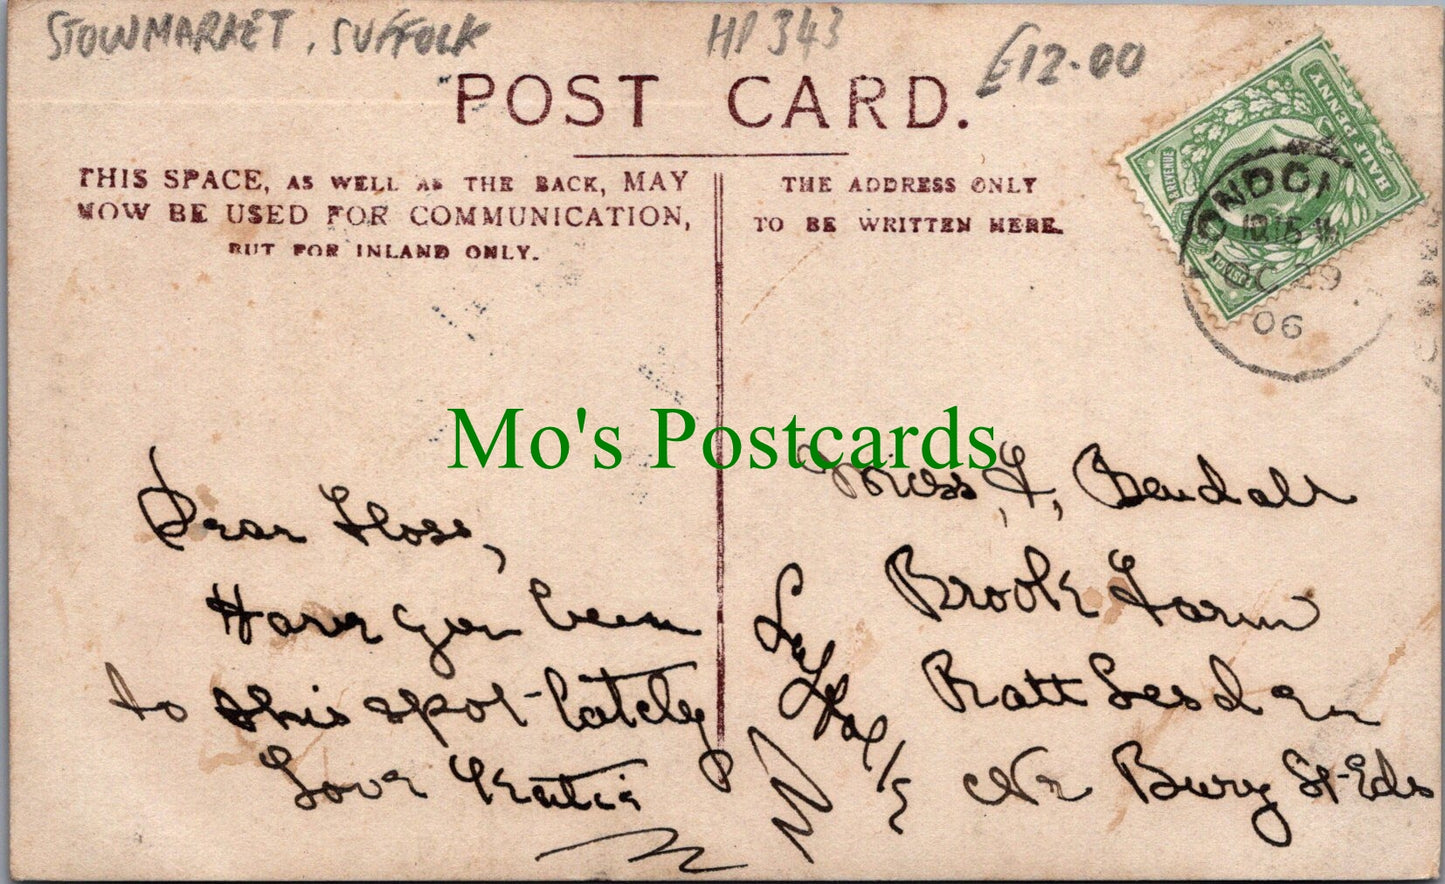 STOWMARKET, SUFFOLK
HP 343
£12.00
POST CARD.
THIS SPACE, AS WELL AS THE BACK, MAY
NOW BE USED FOR COMMUNICATION,
BUT FOR INLAND ONLY.
THE ADDRESS ONLY
TO BE WRITTEN HERE.
HALF PENNY
OC 29
06
Mo's Postcards
Dear Floss,
Have you been
to this spot lately
Love Katie
Miss, F, Bendall
Brook Farm
Rattlesden
Nr Bury St Eds